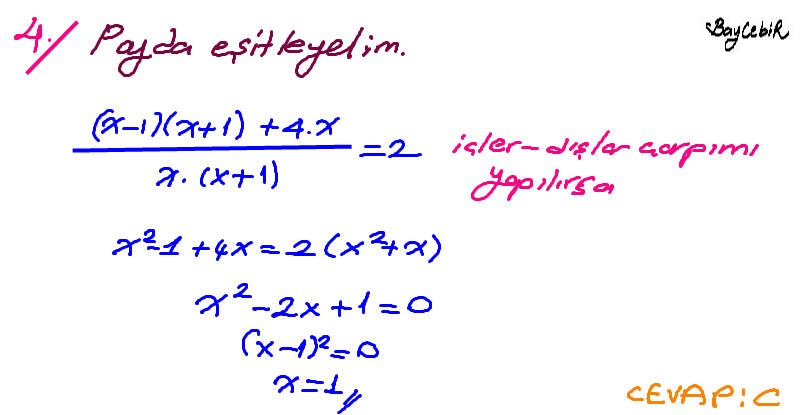 4./ Payda eşitleyelim.
BayCebiR
(x-1)(x+1) + 4.x
x. (x+1)
=2
içler-dışlar çarpımı
yapılırsa
x²-1+4x=2(x²+x)
x²-2x+1=0
(x-1)²=0
x=1//
CEVAP:C